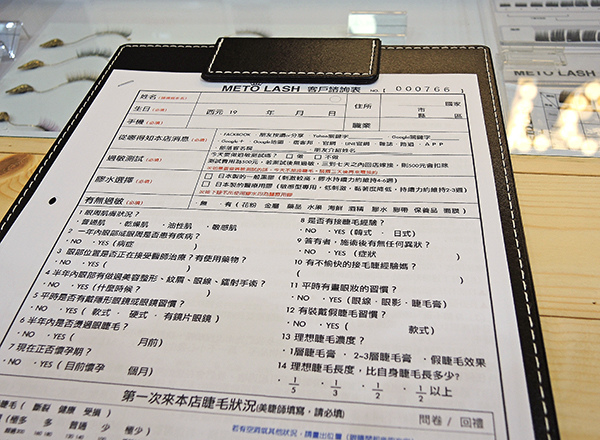 METO LASH 客戶諮詢表 NO. [ 000766 ]
姓名
生日(必填) 西元 19 年 月 日 住所 國家
市 區
手機(必填) 職業
從哪得知本店消息(必填) ·FACEBOOK ·朋友接送or分享 ·Yahoo關鍵字 ·Google關鍵字
·Google+ ·Google地圖 ·鹿舍邦 ·官網 ·LINE官網 ·雜誌 ·路過 ·APP
·部落客名稱 ·朋友介紹姓名
過敏測試(必填) 今天要做過敏測試嗎? □ 做 □ 不做
膠水選擇(必填) □ 日本製的一般黑膠
□ 日本製的醫療用膠
有無過敏(必填) 無 · 有 ( 花粉 金屬 藥品 水果 海鮮 酒精 膠水 膠帶 保養品 面膜 )
1 眼周肌膚狀況?
· 普通肌 · 乾燥肌 · 油性肌 · 敏感肌
2 一年內眼部或眼周是否患有疾病?
· NO · YES ( 病症 )
3 眼部位置是否正在接受醫師治療?有使用藥物?
· NO · YES ( )
4 半年內眼部有做過美容整形、紋眉、眼線、鐳射手術?
· NO · YES ( 什麼時候? )
5 平時是否有戴隱形眼鏡或眼鏡習慣?
· NO · YES ( 軟式 · 硬式 · 有鏡片眼鏡 )
6 半年內是否燙過眼睫毛?
· NO · YES ( 月前 )
7 現在正否懷孕期?
· NO · YES ( 目前懷孕 個月 )
8 是否有接睫毛經驗?
· NO · YES ( 韓式 · 日式 )
9 簽有者,施術後有無任何異狀?
· NO · YES ( 症狀 )
10 有不愉快的接毛睫經驗嗎?
11 平時有畫眼妝的習慣?
· NO · YES ( 眼線 · 眼影 · 睫毛膏 )
12 有裝戴假睫毛習慣?
· NO · YES ( 款式 )
13 理想睫毛濃度?
· 1層睫毛膏 · 2~3層睫毛膏 · 假睫毛效果
14 理想睫毛長度,比自身睫毛長多少?
· 1/5 · 1/3 · 1/2 · 1/2 以上
第一次來本店睫毛狀況(美睫師填寫,請必填)
睫毛 ( 斷裂 健康 受損 )
問卷 / 回禮
METO LASH